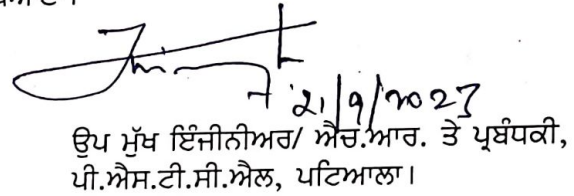 21/9/2023
ਉਪ ਮੁੱਖ ਇੰਜੀਨੀਅਰ/ ਐਚ.ਆਰ. ਤੇ ਪ੍ਰਬੰਧਕੀ,
ਪੀ.ਐਸ.ਟੀ.ਸੀ.ਐਲ, ਪਟਿਆਲਾ।